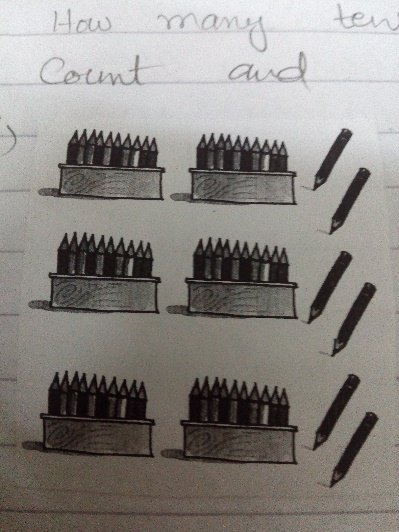 How many
Count and